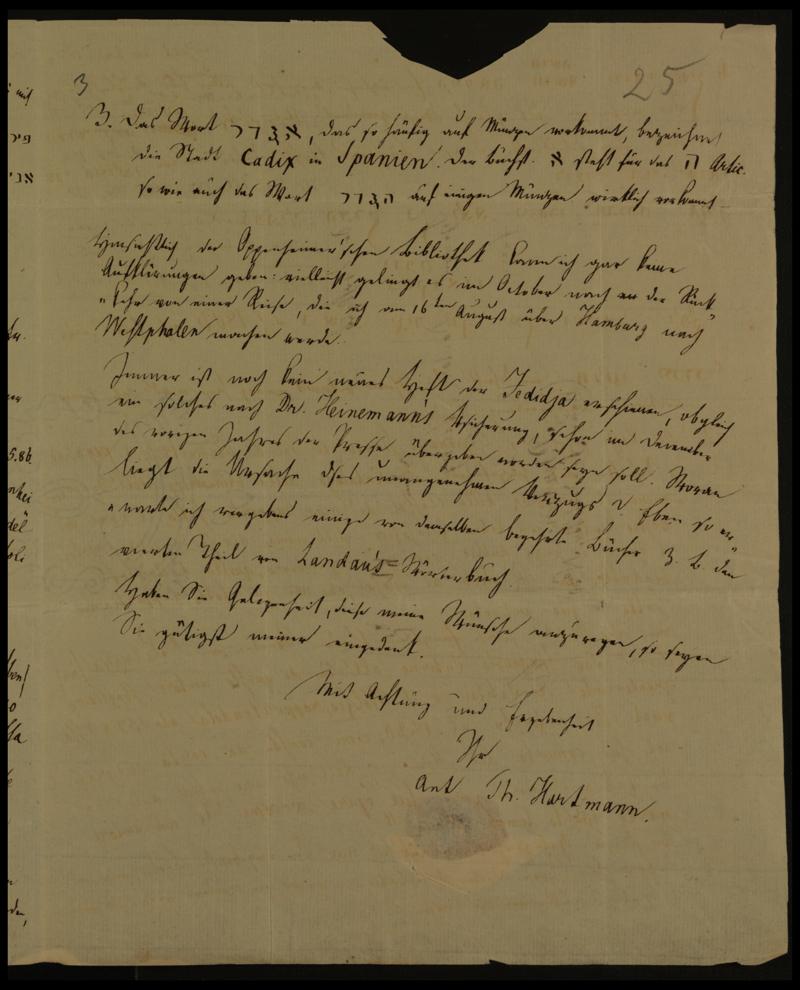 3
25
3. Das Wort אגדר, das so häufig auf Münzen vorkommt, bezeichnet
die Stadt Cadix in Spanien. Der Buchst. א steht für das ה Artic.
so wie auch das Wort הגדר auf einigen Münzen wirklich vorkommt.
Hinsichtlich der Oppenheimer'schen Bibliothek kann ich gar keine
Aufklärungen geben: vielleicht gelingt es im October nach der Rück"
"kehr von einer Reise, die ich am 16ten August über Hamburg nach
Westphalen machen werde.
Immer ist noch kein neues Heft der Jedidja erschienen, obgleich
ein solches nach Dr. Heinemann's Versicherung, schon im December
des vorigen Jahres der Presse übergeben worden seyn soll. Woran
liegt die Ursache dses unangenehmen Verzugs? Eben so er"
"warte ich vergebens einige von demselben begehrte Bücher z. b. den
vierten Theil von Landau's Wörterbuch.
Haben Sie Gelegenheit, diese meine Wünsche anzuregen, so seyen
Sie gütigst meiner eingedenk.
Mit Achtung und Ergebenheit
Ihr
Ant Th. Hartmann.